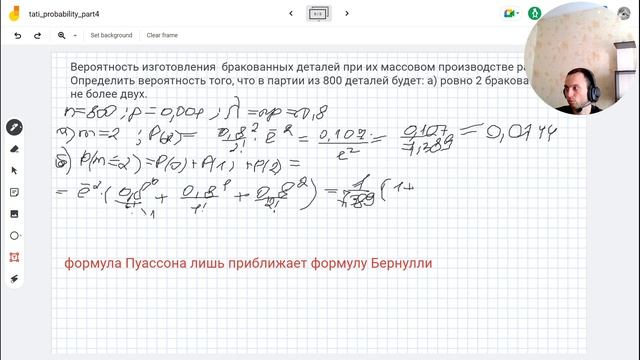 tati_probability_part4
Set background Clear frame
Вероятность изготовления бракованных деталей при их массовом производстве ра
Определить вероятность того, что в партии из 800 деталей будет: а) ровно 2 бракова
не более двух.
n=800; p=0,001; λ=np=0,8
а) m=2 ; P(2)= 0,8²/2! · e⁻² = 0,107/e² = 0,107/7,389 = 0,0144
б) P(m≤2)=P(0)+P(1)+P(2)=
= e⁻² · (0,8⁰/0! + 0,8¹/1! + 0,8²/2!) = 1/7,389 (1+
формула Пуассона лишь приближает формулу Бернулли